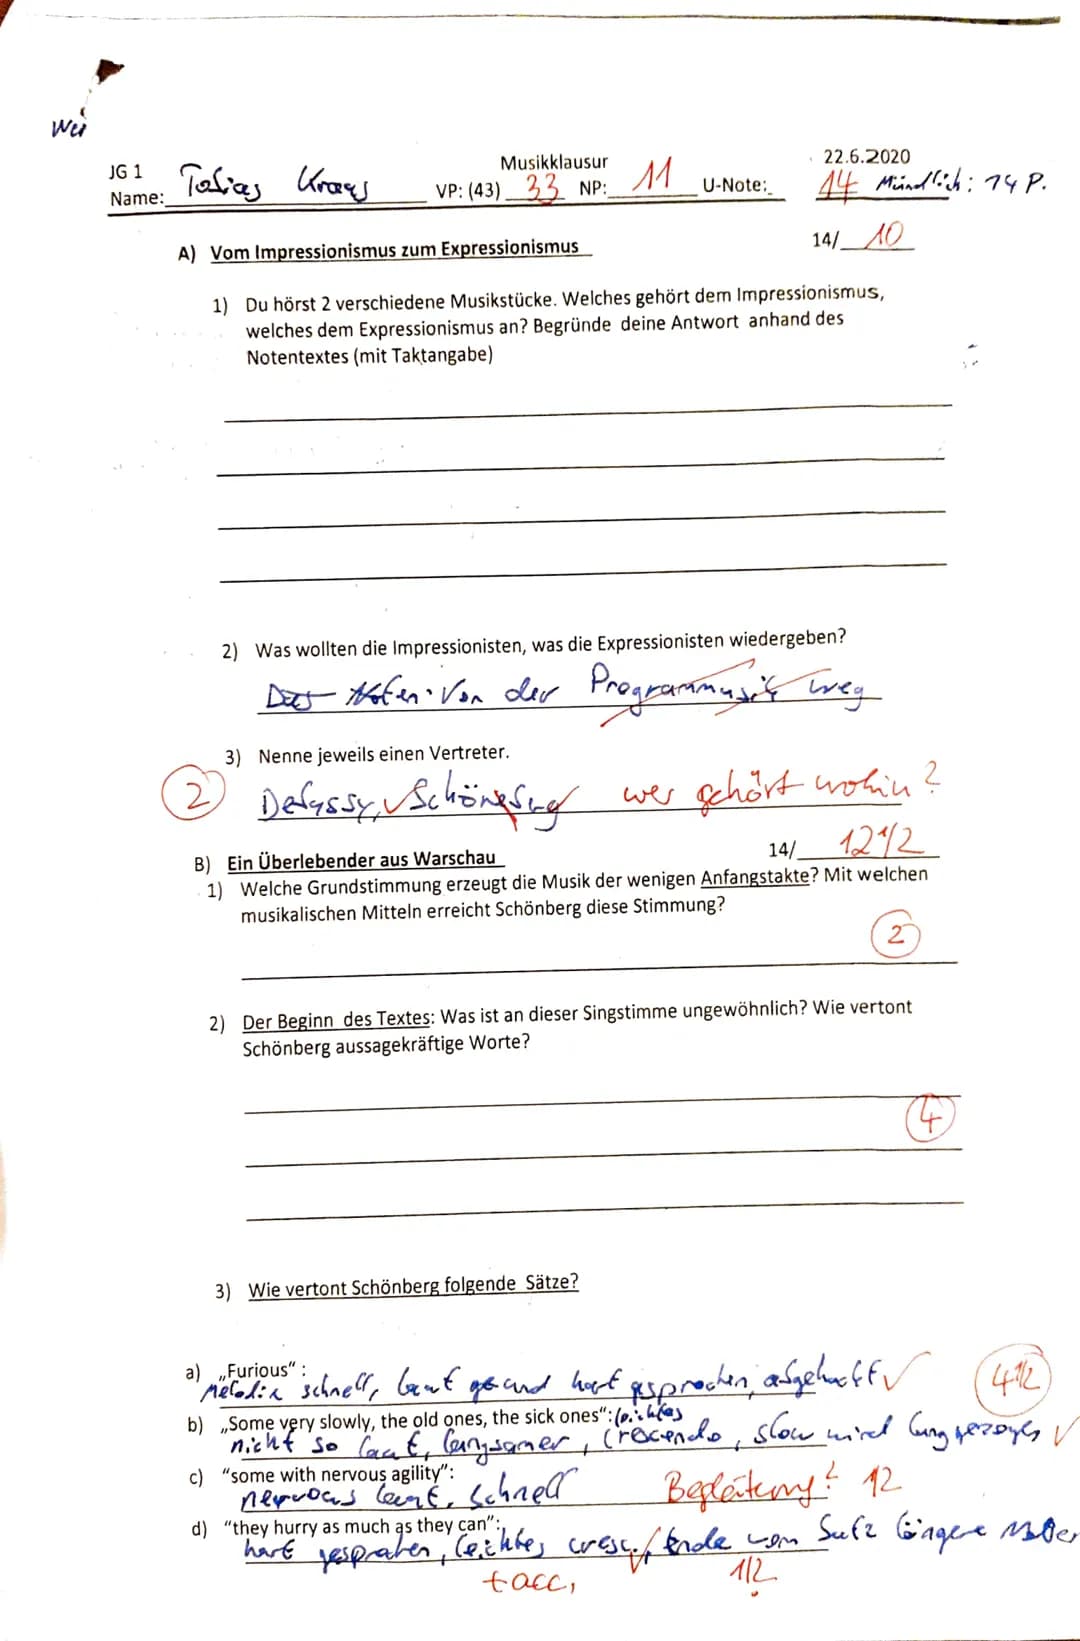 Wei
JG 1 Musikklausur 22.6.2020
Name: Tobias Kraus VP: (43) 33 NP: 11 U-Note: 14 Mündlich: 14 P.
A) Vom Impressionismus zum Expressionismus 14/ 10
1) Du hörst 2 verschiedene Musikstücke. Welches gehört dem Impressionismus,
welches dem Expressionismus an? Begründe deine Antwort anhand des
Notentextes (mit Taktangabe)
2) Was wollten die Impressionisten, was die Expressionisten wiedergeben?
Von der Programmusik weg
3) Nenne jeweils einen Vertreter.
2 Debussy, Schönberg wer gehört wohin?
B) Ein Überlebender aus Warschau 14/ 12 1/2
1) Welche Grundstimmung erzeugt die Musik der wenigen Anfangstakte? Mit welchen
musikalischen Mitteln erreicht Schönberg diese Stimmung?
2
2) Der Beginn des Textes: Was ist an dieser Singstimme ungewöhnlich? Wie vertont
Schönberg aussagekräftige Worte?
4
3) Wie vertont Schönberg folgende Sätze?
a) „Furious“ :
Melodie schnell, laut und hart gesprochen, abgehackt √ 4 1/2
b) „Some very slowly, the old ones, the sick ones“: leichtes
nicht so laut, langsamer, crescendo, slow wird lang gezogen √
c) "some with nervous agility":
nervous laut, schnell Begleitung? 1/2
d) "they hurry as much as they can":
hart gesprochen, leichtes cresc. √, Ende vom Satz längere
+ acc, 1/2